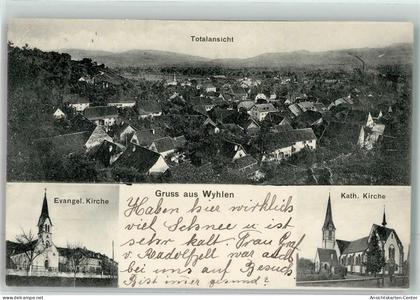 Totalansicht
Gruss aus Wyhlen
Evangel. Kirche
Kath. Kirche
Haben hier wirklich
viel Schnee u ist
sehr kalt. Frau Graf
v. Radolfzell war auch
bei uns auf Besuch
Ist immer gesund?
akpool.de